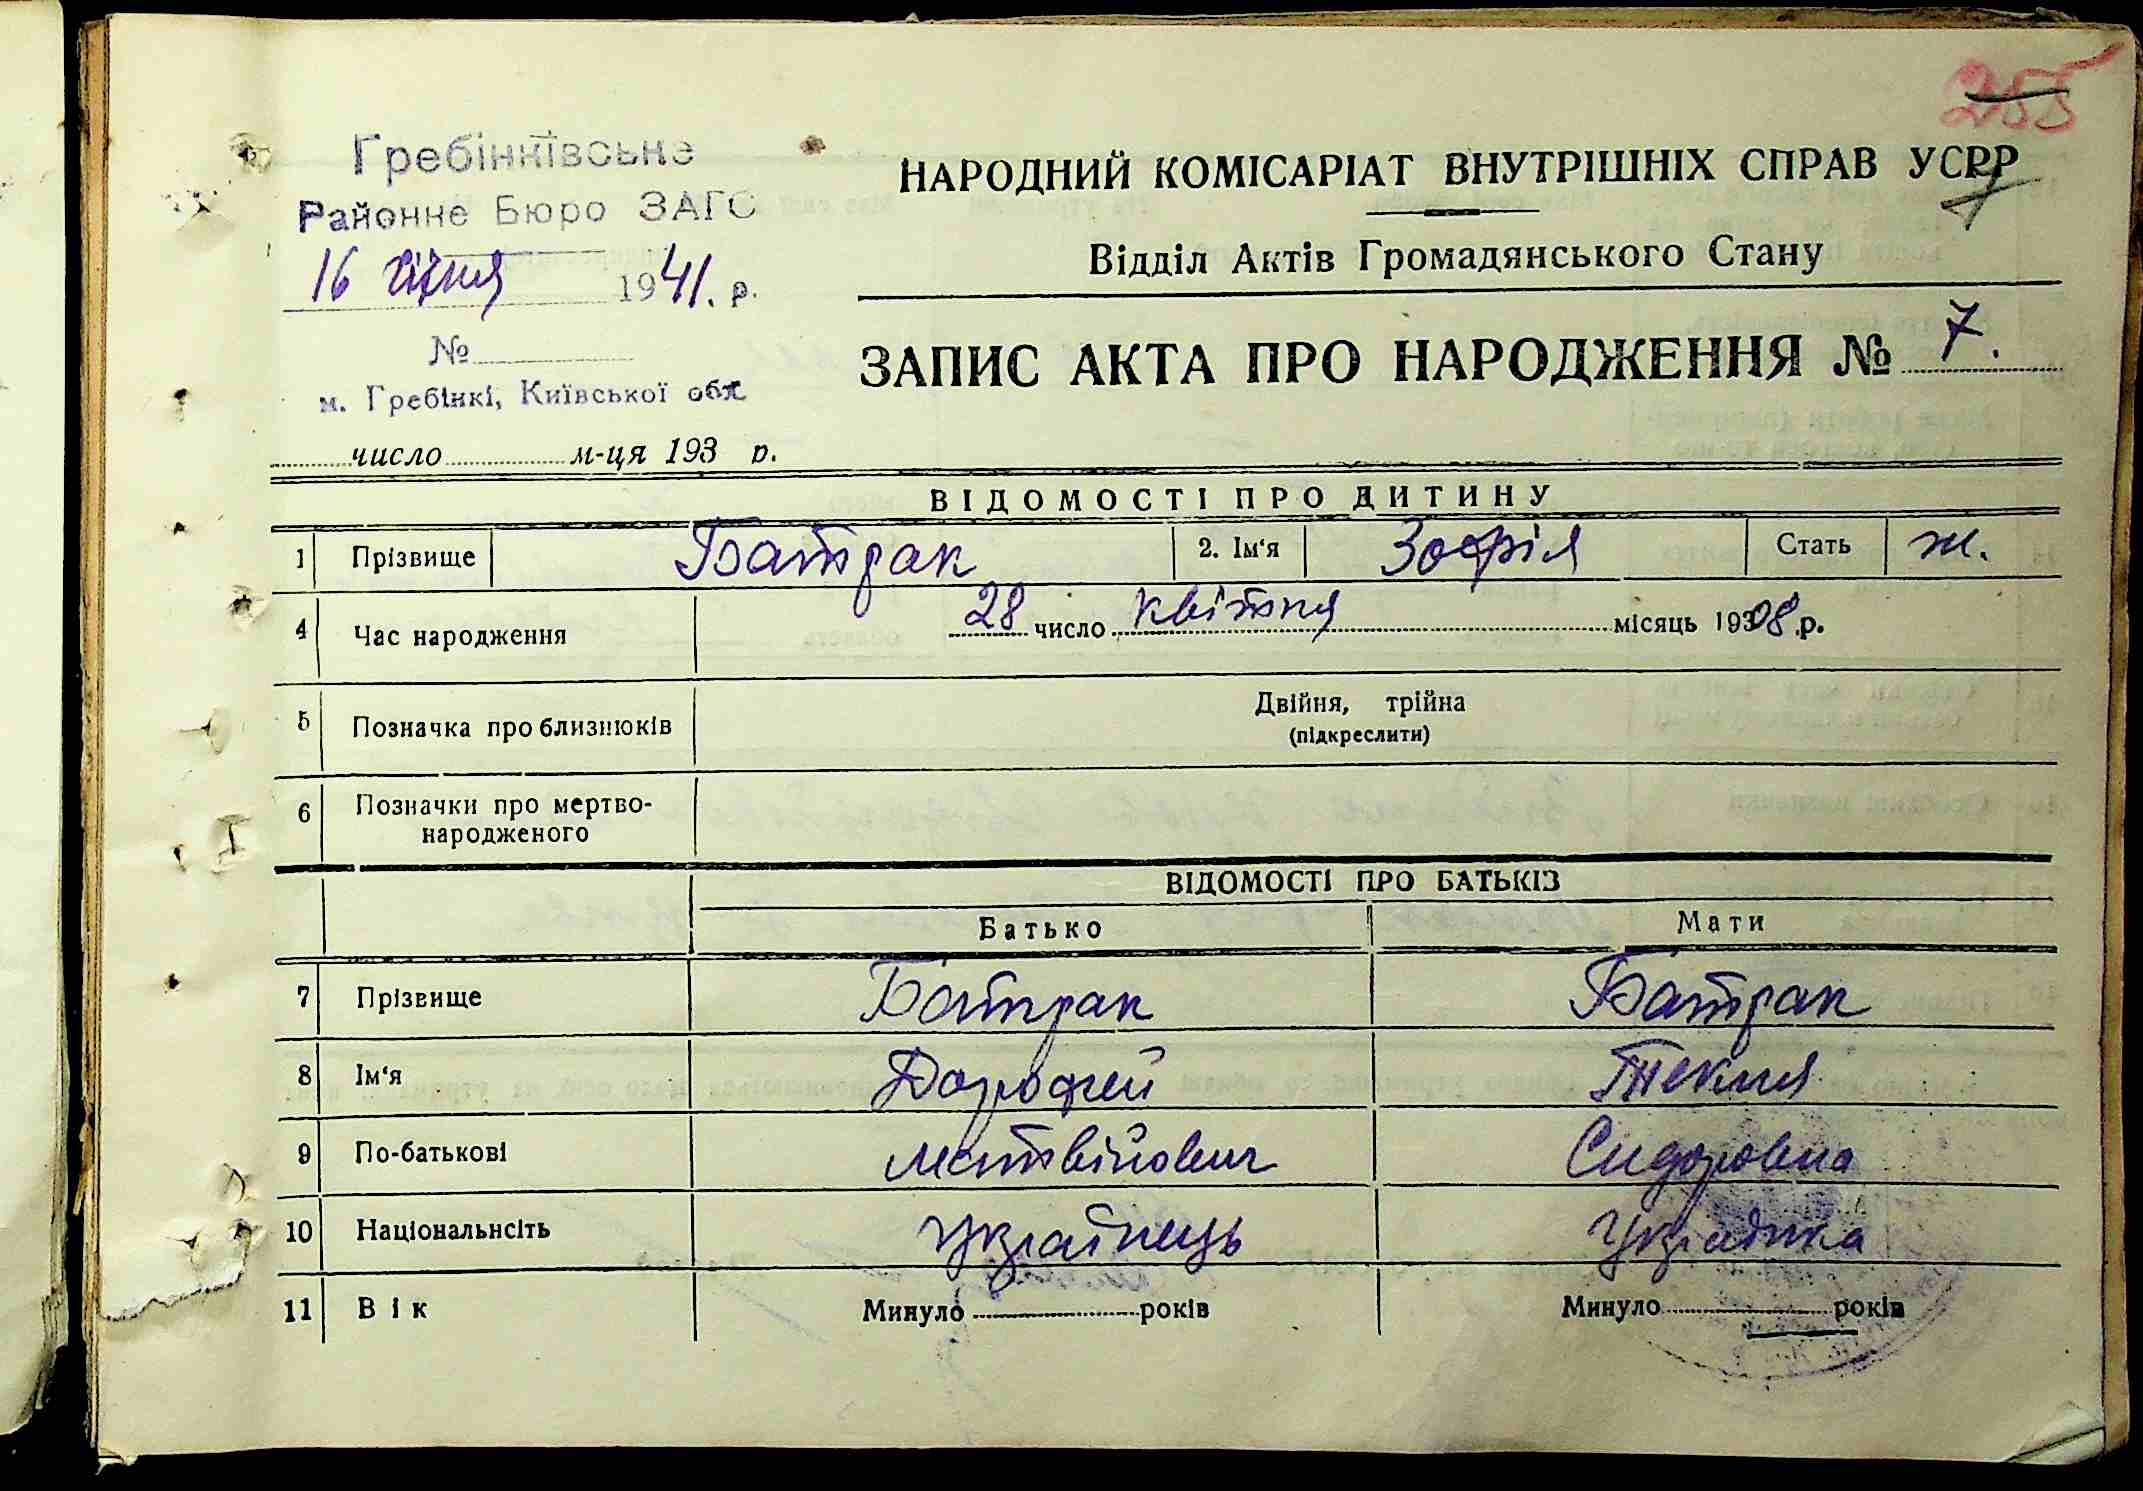 255
Гребінківське
Районне Бюро ЗАГС
16 січня 1941. р.
№
м. Гребінкі, Київської обл.
число м-ця 193 р.
НАРОДНИЙ КОМІСАРІАТ ВНУТРІШНІХ СПРАВ УСРР
Відділ Актів Громадянського Стану
ЗАПИС АКТА ПРО НАРОДЖЕННЯ № 7.
ВІДОМОСТІ ПРО ДИТИНУ
1 Прізвище Батрак 2. Ім'я Зофія Стать ж.
4 Час народження 28 число квітня місяць 1908 р.
5 Позначка про близнюків Двійня, трійна
(підкреслити)
6 Позначки про мертво-
народженого
ВІДОМОСТІ ПРО БАТЬКІВ
Батько Мати
7 Прізвище Батрак Батрак
8 Ім'я Дорофей Текля
9 По-батькові Матвійович Сидоровна
10 Національнсіть Українець Українка
11 Вік Минуло років Минуло років